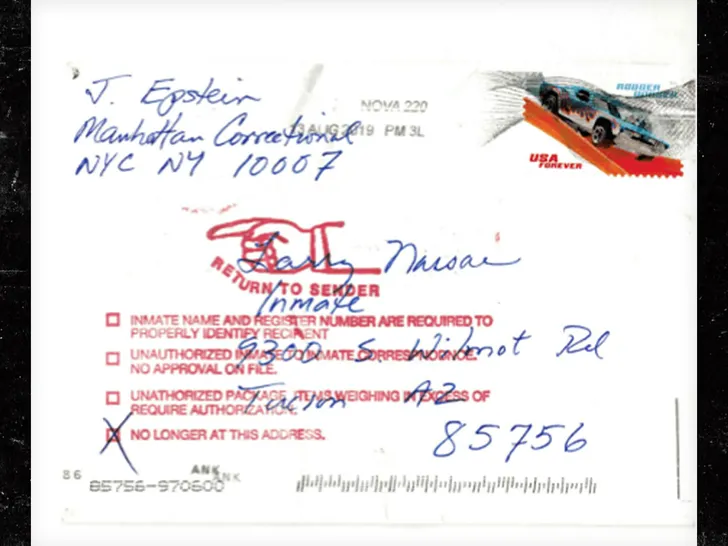 J. Epstein
Manhattan Correctional
NYC NY 10007
NOVA 220
13 AUG 2019 PM 3L
RODGER DODGER
USA
FOREVER
Larry Nassar
Inmate
9300 S. Wilmot Rd
Tucson AZ
85756
RETURN TO SENDER
INMATE NAME AND REGISTER NUMBER ARE REQUIRED TO
PROPERLY IDENTIFY RECIPIENT
UNAUTHORIZED INMATE TO INMATE CORRESPNDENCE.
NO APPROVAL ON FILE.
UNATHORIZED PACKAGE. ITEMS WEIGHING IN EXCESS OF
REQUIRE AUTHORIZATION.
X NO LONGER AT THIS ADDRESS.
86
ANK
ANK
85756-970600